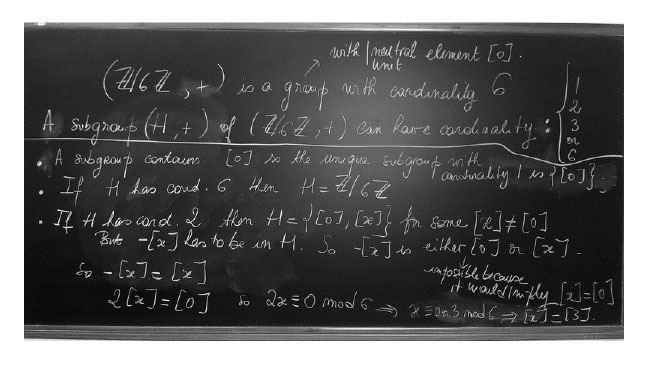 with | neutral element [0].
unit
(ℤ/6ℤ, +) is a group with cardinality 6
A subgroup (H, +) of (ℤ/6ℤ, +) can have cardinality : { 1
2
3
or
6
• A subgroup contains [0] so the unique subgroup with
cardinality 1 is {[0]}.
• If H has card. 6 then H = ℤ/6ℤ
• If H has card. 2 then H = {[0], [x]} for some [x] ≠ [0]
But -[x] has to be in H. So -[x] is either [0] or [x].
impossible because
it would imply [x] = [0]
So -[x] = [x]
2[x] = [0] so 2x ≡ 0 mod 6 ⇒ x ≡ 0 or 3 mod 6 ⇒ [x] = [3].